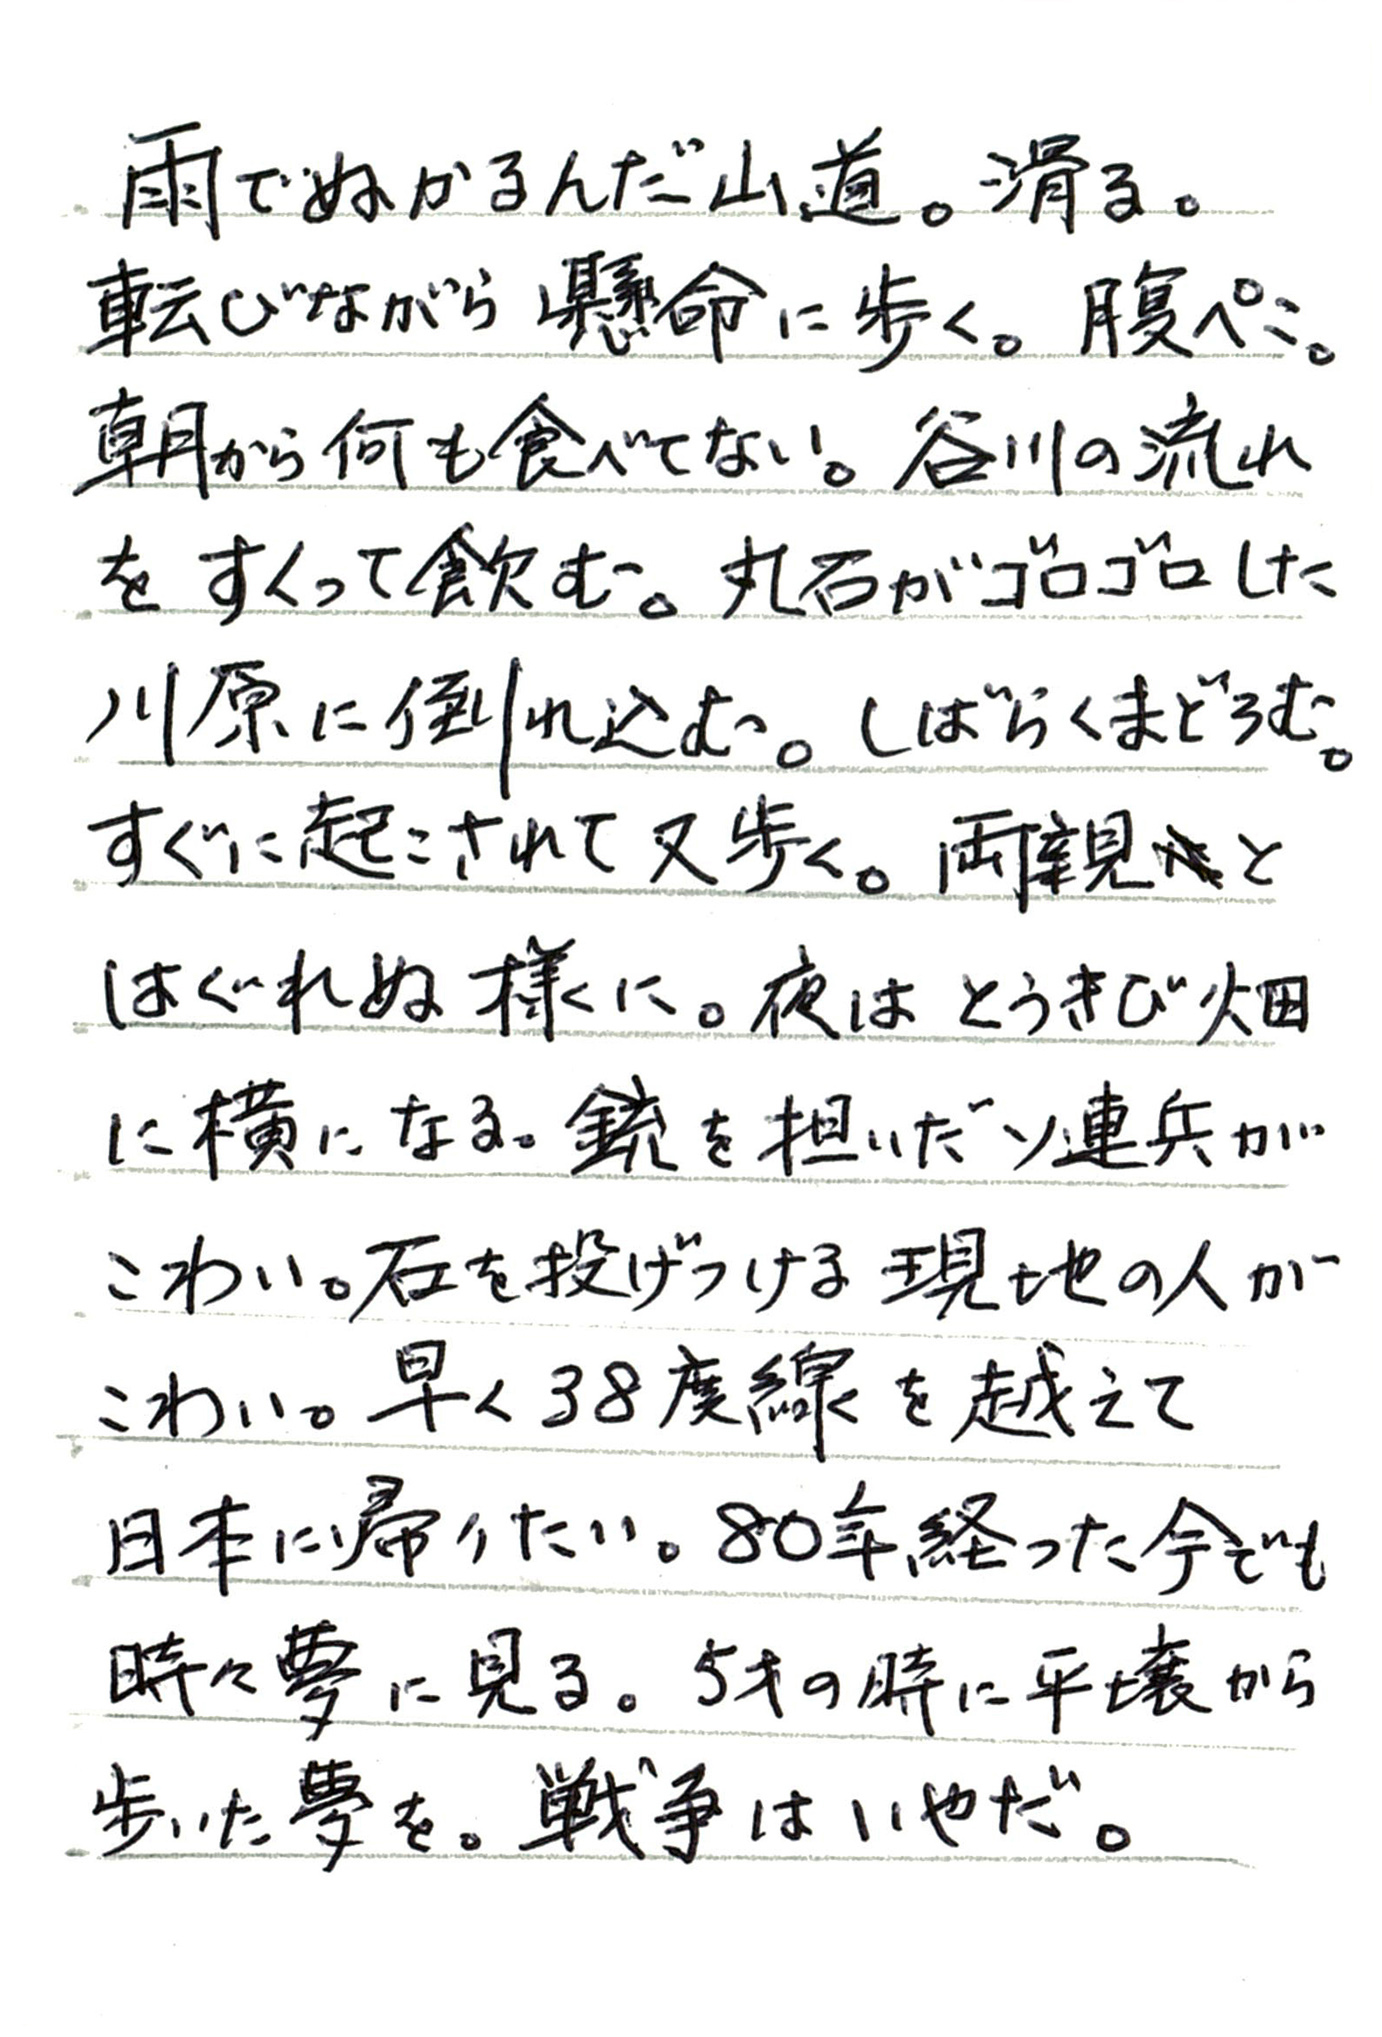 雨でぬかるんだ山道。滑る。
転びながら懸命に歩く。腹ペこ。
朝から何も食べてない。谷川の流れ
をすくって飲む。丸石がゴロゴロした
川原に倒れ込む。しばらくまどろむ。
すぐに起こされて又歩く。両親と
はぐれぬ様に。夜はとうきび畑
に横になる。銃を担いだソ連兵が
こわい。石を投げつける現地の人が
こわい。早く38度線を越えて
日本に帰りたい。80年経った今でも
時々夢に見る。5才の時に平壌から
歩いた夢を。戦争はいやだ。